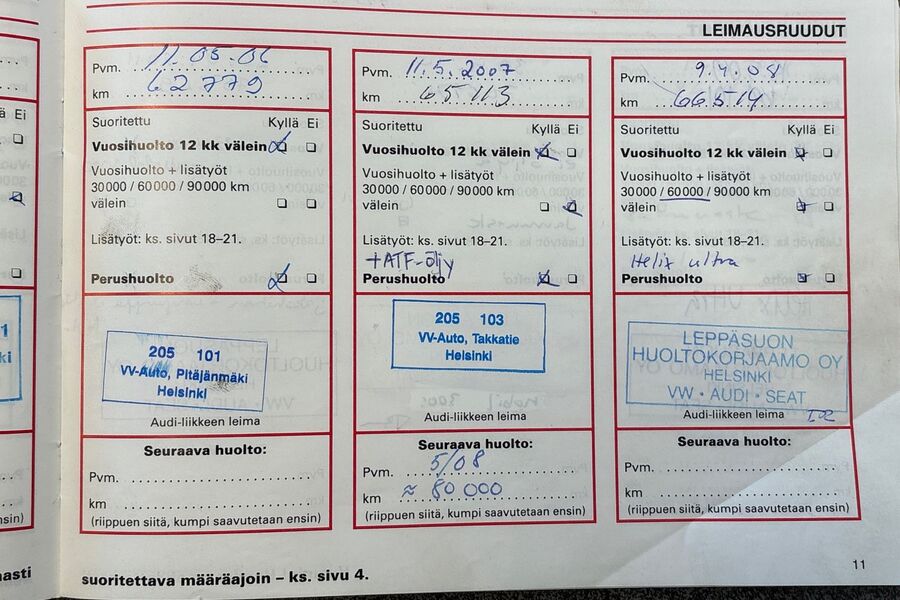 LEIMAUSRUUDUT
Pvm. 11.05.06
km 62779
Suoritettu Kyllä Ei
Vuosihuolto 12 kk välein
Vuosihuolto + lisätyöt
30 000 / 60 000 / 90 000 km
välein
Lisätyöt: ks. sivut 18–21.
Perushuolto
205 101
VV-Auto, Pitäjänmäki
Helsinki
Audi-liikkeen leima
Seuraava huolto:
Pvm.
km
(riippuen siitä, kumpi saavutetaan ensin)
Pvm. 11.5.2007
km 65113
Suoritettu Kyllä Ei
Vuosihuolto 12 kk välein
Vuosihuolto + lisätyöt
30 000 / 60 000 / 90 000 km
välein
Lisätyöt: ks. sivut 18–21.
+ATF-öljy
Perushuolto
205 103
VV-Auto, Takkatie
Helsinki
Audi-liikkeen leima
Seuraava huolto:
Pvm. 5/08
km ≈ 80 000
(riippuen siitä, kumpi saavutetaan ensin)
Pvm. 9.4.08
km 66514
Suoritettu Kyllä Ei
Vuosihuolto 12 kk välein
Vuosihuolto + lisätyöt
30 000 / 60 000 / 90 000 km
välein
Lisätyöt: ks. sivut 18–21.
Helix ultra
Perushuolto
LEPPÄSUON
HUOLTOKORJAAMO OY
HELSINKI
VW · AUDI · SEAT
Audi-liikkeen leima
Seuraava huolto:
Pvm.
km
(riippuen siitä, kumpi saavutetaan ensin)
suoritettava määräajoin – ks. sivu 4.
11